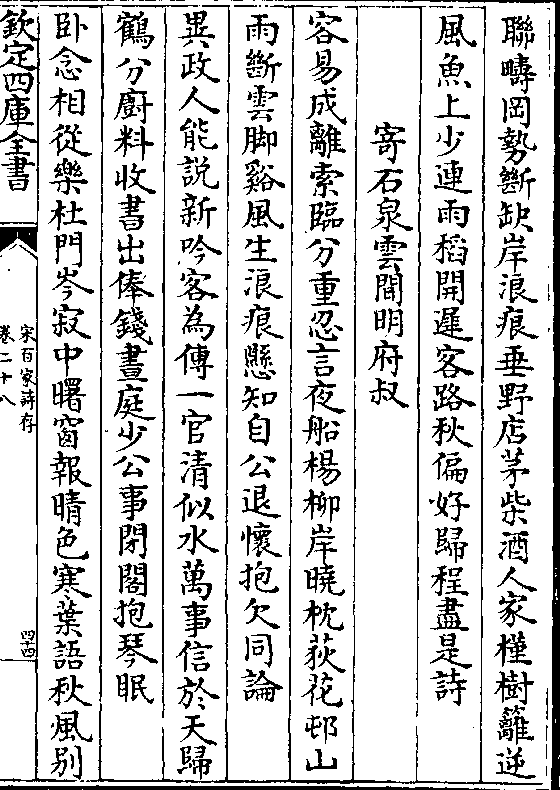 聯疇岡勢斷缺岸浪痕垂野店茅柴酒人家槿樹籬逆
風魚上少連雨稻開遲客路秋偏好歸程盡是詩
寄石泉雲間明府叔
容易成離索臨分重忍言夜船楊柳岸曉枕荻花邨山
雨斷雲脚谿風生浪痕懸知自公退懷抱欠同論
異政人能說新吟客為傳一官清似水萬事信於天歸
鶴分廚料收書出俸錢晝庭少公事閉閣抱琴眠
卧念相從樂杜門岑寂中曙窗報晴色寒葉語秋風别
欽定四庫全書
宋百家詩存
卷二十八
四十四